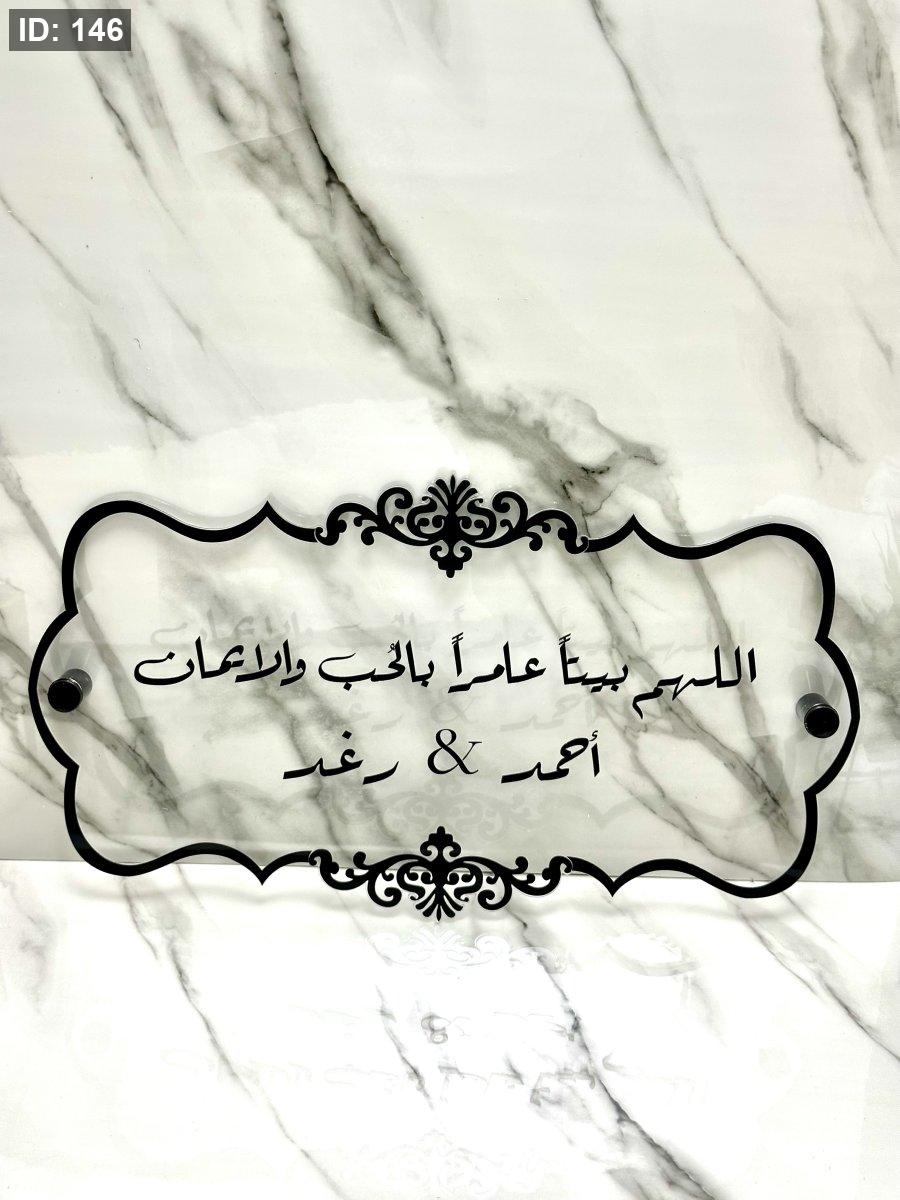 ID: 146
اللهم بيتاً عامراً بالحُب والايمان
أحمد & رغد